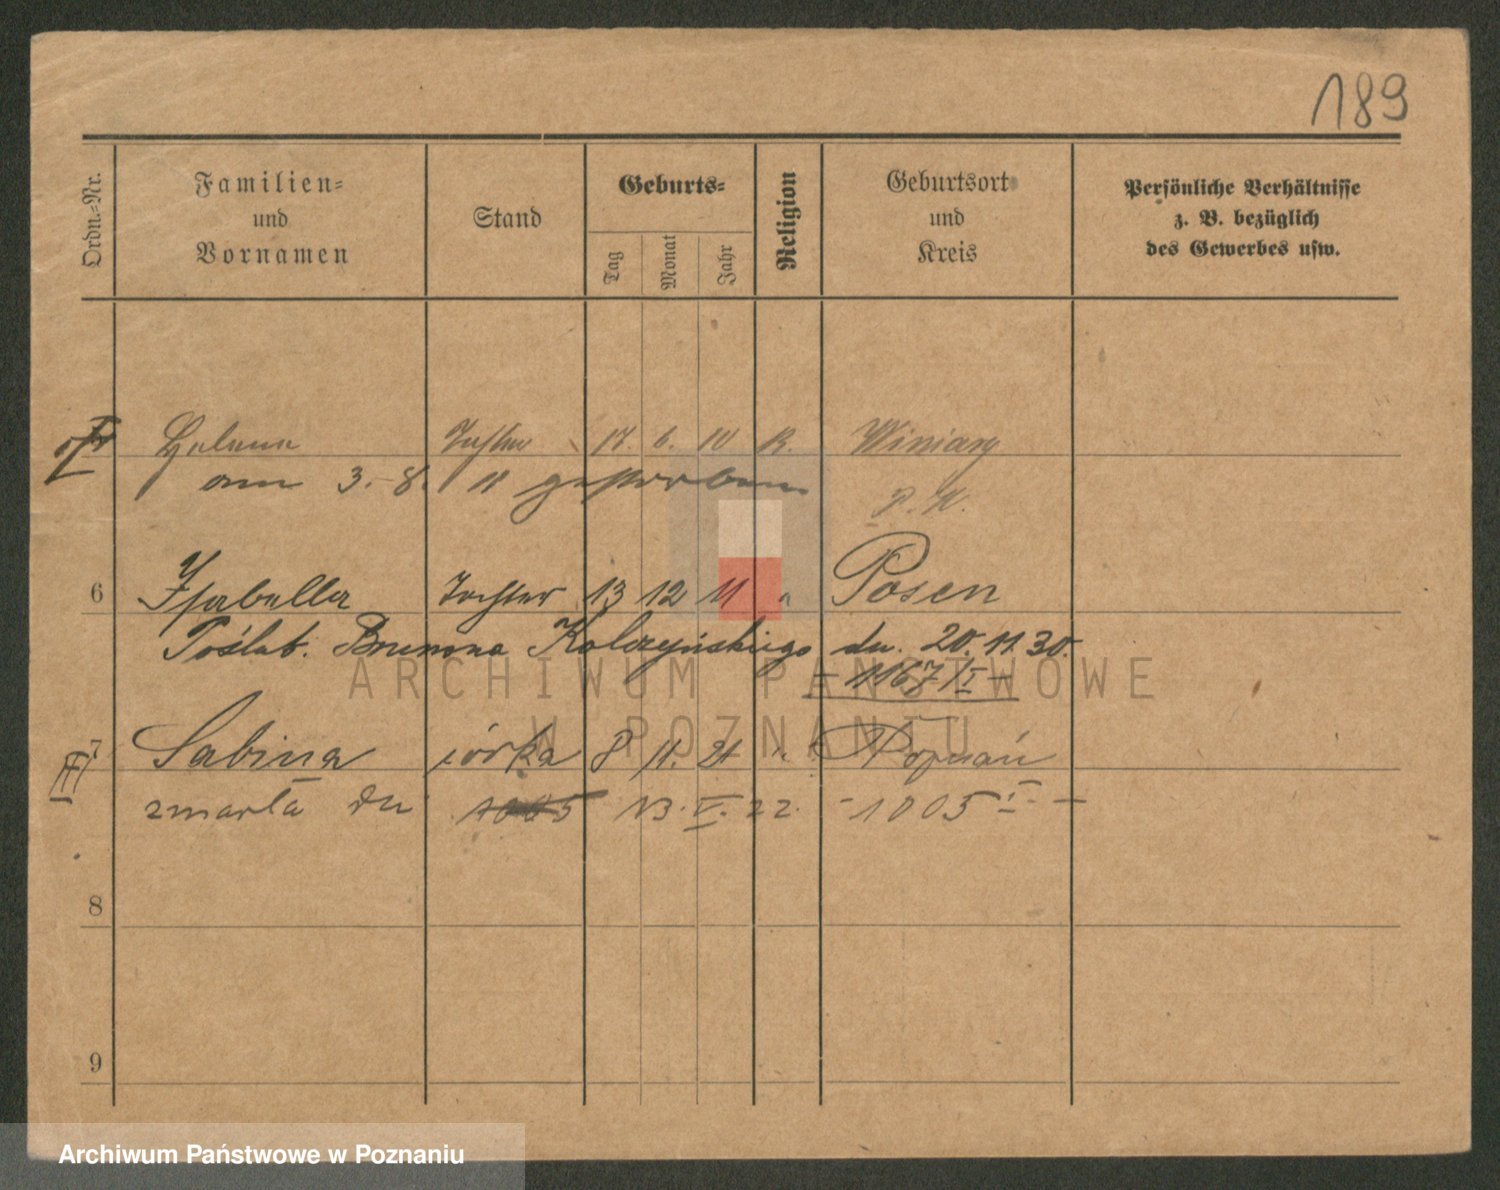 189
Ordn.-Nr.
Familien-
und
Vornamen
Stand
Geburts-
Tag
Monat
Jahr
Religion
Geburtsort
und
Kreis
Persönliche Verhältnisse
z. B. bezüglich
des Gewerbes usw.
Helena Tochter 17. 6. 10 K. Winiary
am 3.-8. 11 gestorben
P. K.
6 Isabella Tochter 13 12 11 " Posen
Poślub. Brunona Kolczyńskiego dn. 20.11.30.
- 1167/I -
7 Sabina córka 8 11. 21 " Poznań
zmarła dn 1005 13. V. 22. - 1005 I. -
8
9
ARCHIWUM PAŃSTWOWE
W POZNANIU
Archiwum Państwowe w Poznaniu